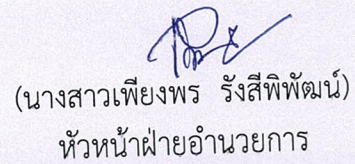 (นางสาวเพียงพร รังสีพิพัฒน์)
หัวหน้าฝ่ายอำนวยการ